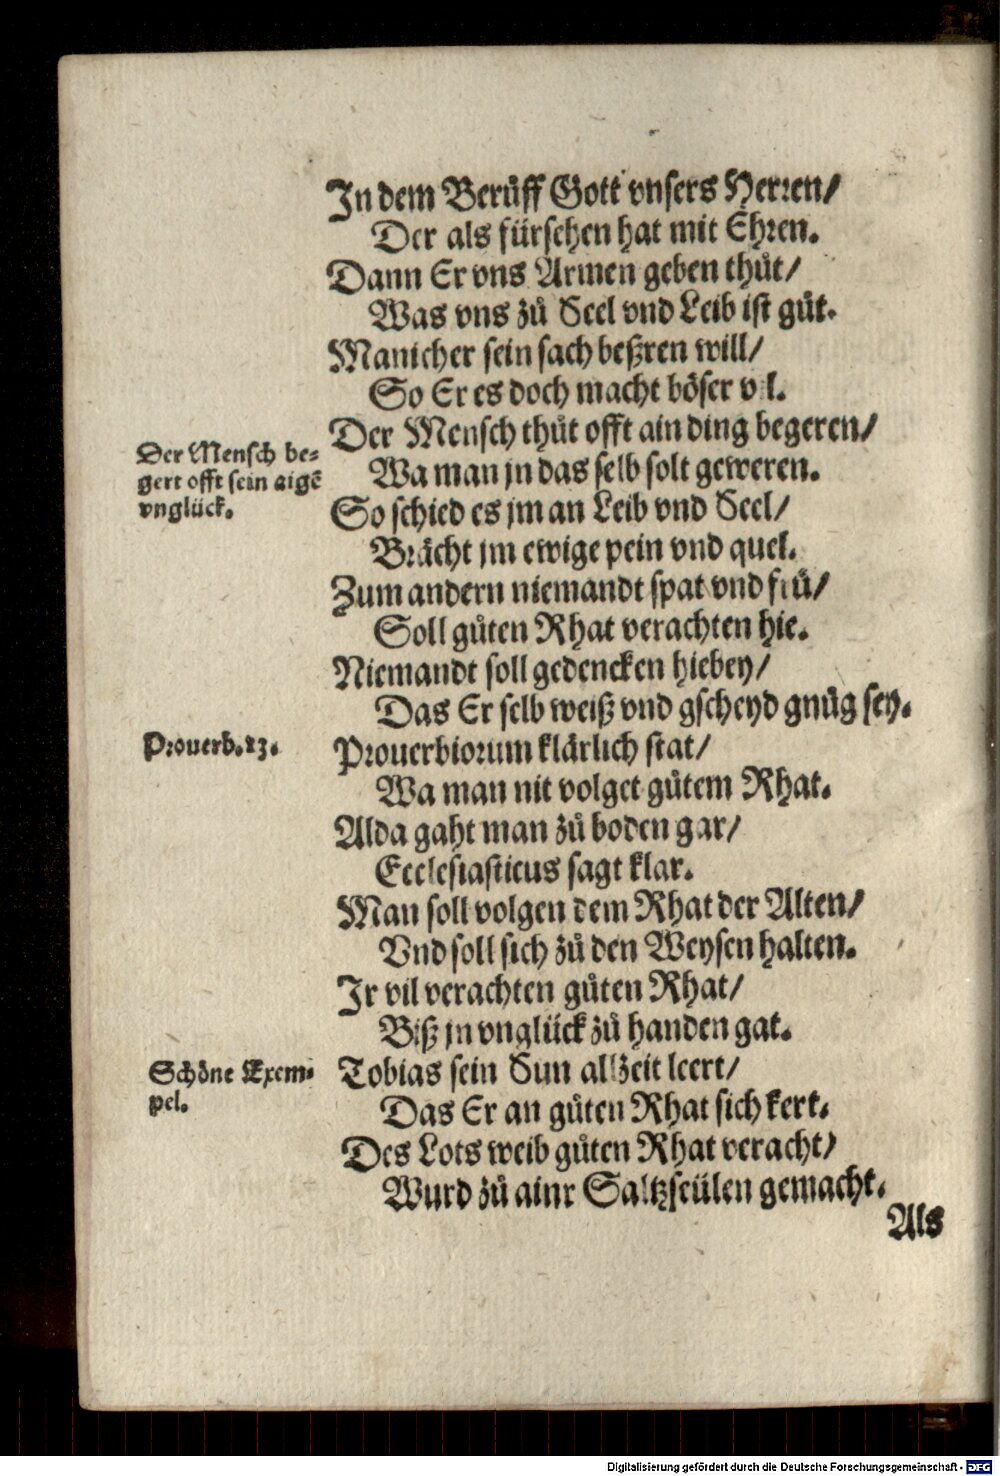 In dem Berůff Gott vnsers Herren/
Der als fürsehen hat mit Ehren.
Dann Er vns Armen geben thůt/
Was vns zů Seel vnd Leib ist gůt.
Manicher sein sach beßren will/
So Er es doch macht böser vil.
Der Mensch be-
gert offt sein aigē
vnglück.
Der Mensch thůt offt ain ding begeren/
Wa man jn das selb solt geweren.
So schied es jm an Leib vnd Seel/
Brächt jm ewige pein vnd quel.
Zum andern niemandt spat vnd frů/
Soll gůten Rhat verachten hie.
Niemandt soll gedencken hiebey/
Das Er selb weiß vnd gscheyd gnůg sey.
Prouerb. 13.
Prouerbiorum klärlich stat/
Wa man nit volget gůtem Rhat.
Alda gaht man zů boden gar/
Ecclesiasticus sagt klar.
Man soll volgen dem Rhat der Alten/
Vnd soll sich zů den Weysen halten.
Ir vil verachten gůten Rhat/
Biß jn vnglück zů handen gat.
Schöne Exem-
pel.
Tobias sein Sun allzeit leert/
Das Er an gůten Rhat sich kert.
Des Lots weib gůten Rhat veracht/
Wurd zů ainr Saltzseülen gemacht.
Als
Digitalisierung gefördert durch die Deutsche Forschungsgemeinschaft - DFG